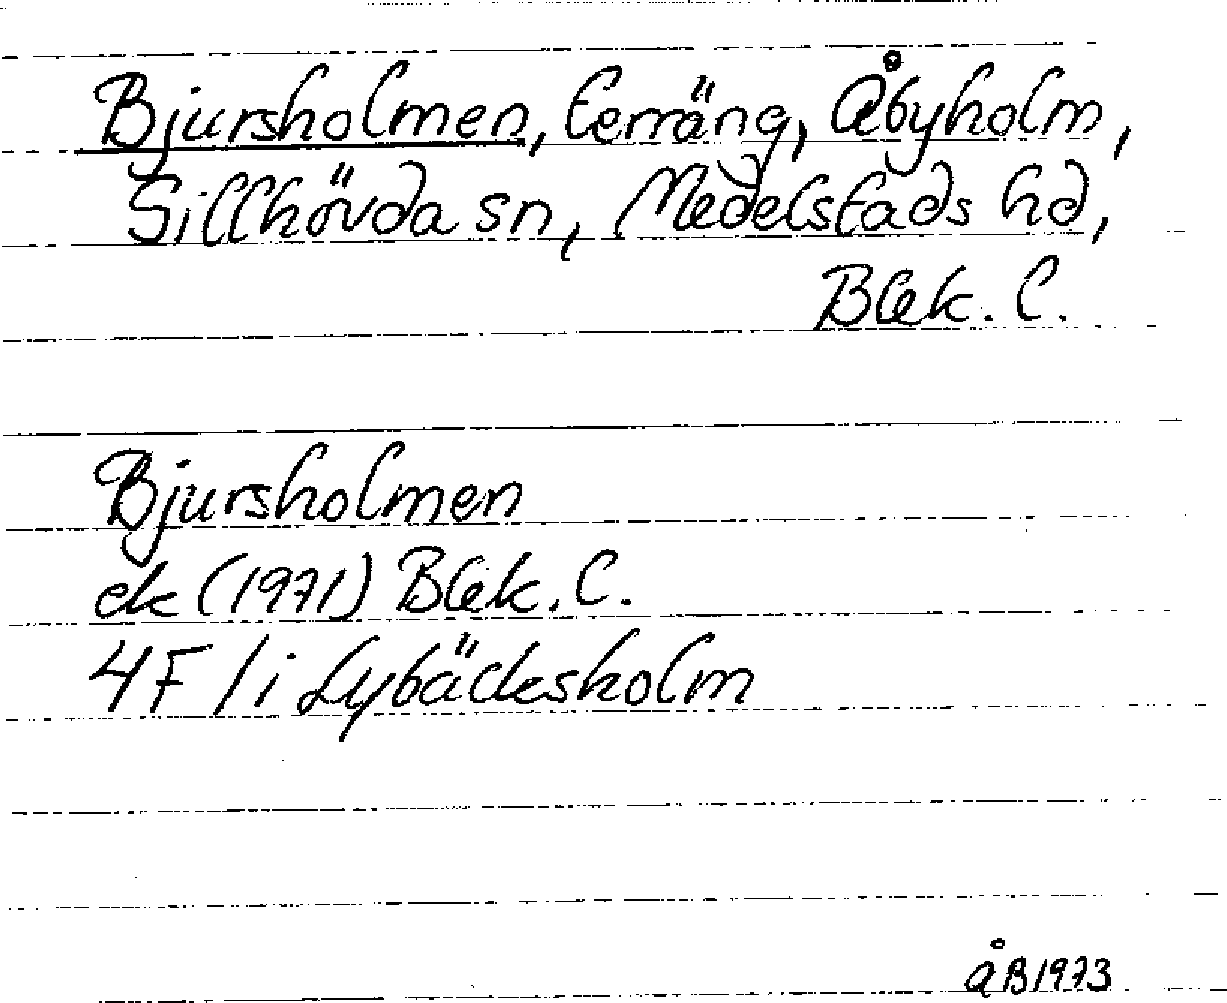 Bjursholmen, terräng, Åbyholm,
Sillhövda sn, Medelstads hd,
Blek. l.
Bjursholmen
ek (1971) Blek. l.
4F/i Lybäcksholm
ÅB 1973